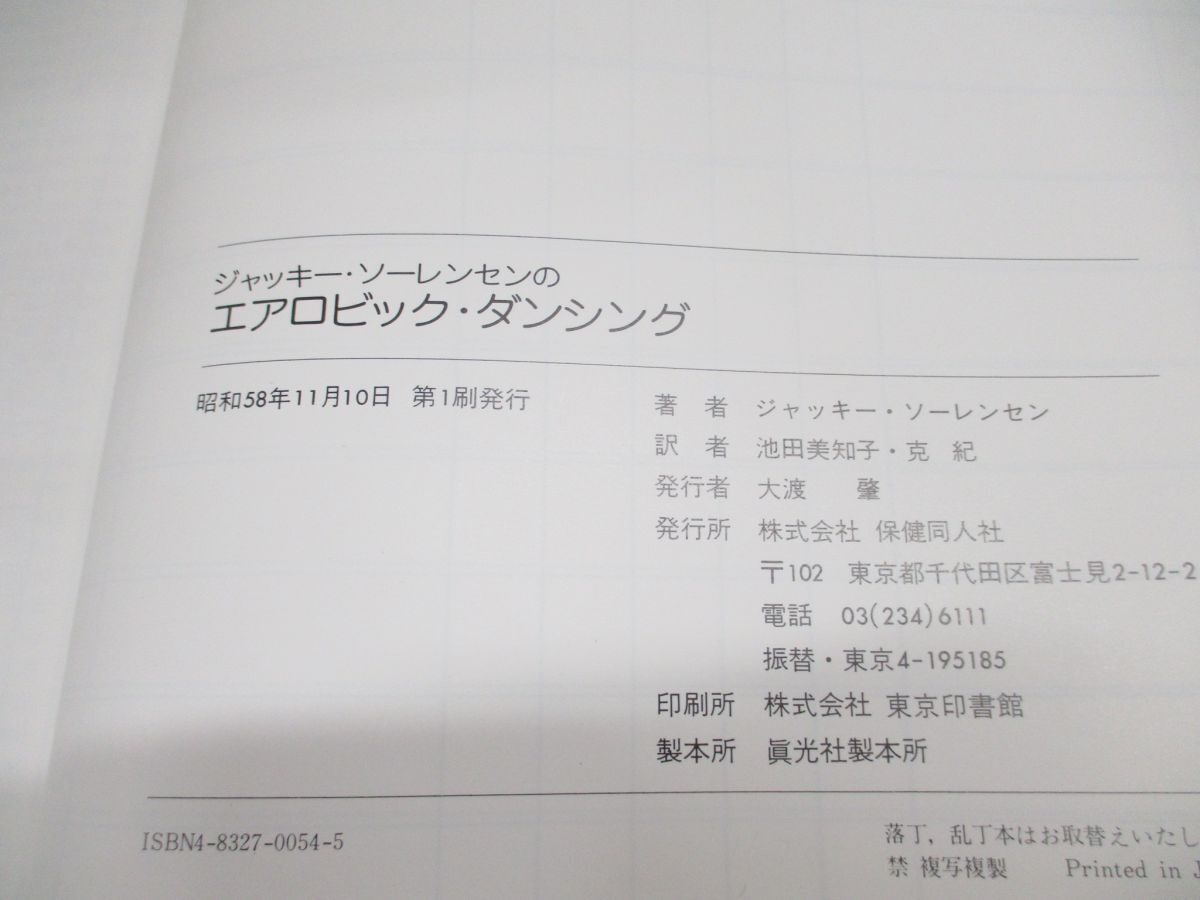 ジャッキー・ソーレンセンの
エアロビック・ダンシング
昭和58年11月10日 第1刷発行
著 者 ジャッキー・ソーレンセン
訳 者 池田美知子・克 紀
発行者 大渡 肇
発行所 株式会社 保健同人社
〒102 東京都千代田区富士見2-12-2
電話 03(234)6111
振替・東京4-195185
印刷所 株式会社 東京印書館
製本所 眞光社製本所
ISBN4-8327-0054-5
落丁，乱丁本はお取替えいたし
禁 複写複製 Printed in J